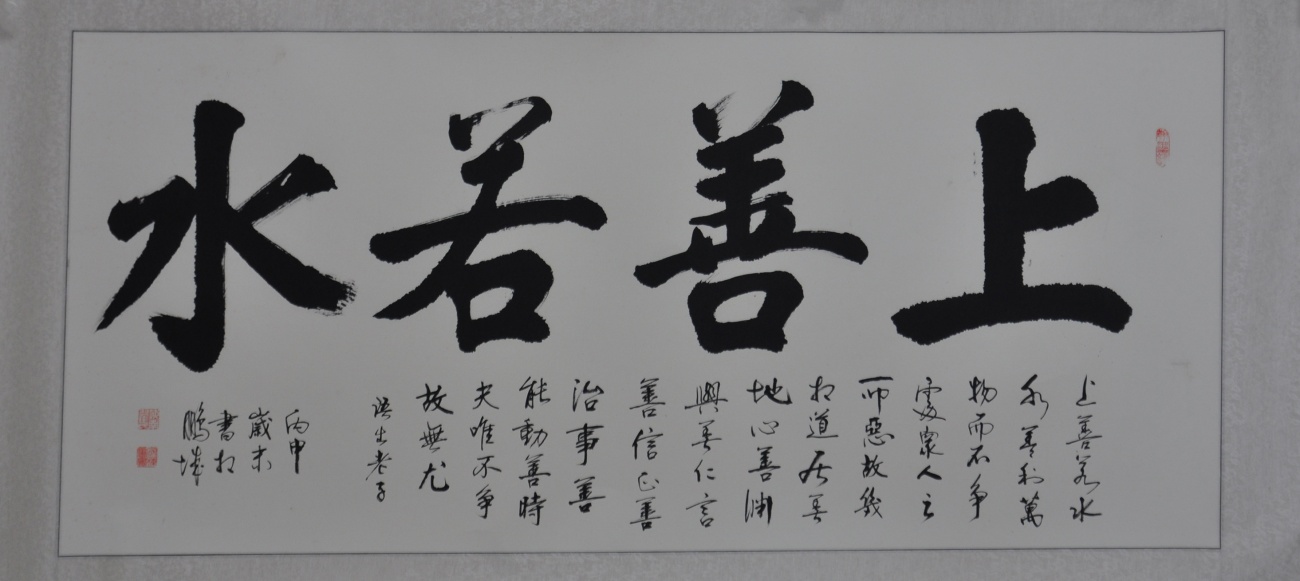 上善若水
上善若水
水善利萬
物而不争
處衆人之
所惡故幾
於道居善
地心善淵
與善仁言
善信正善
治事善
能動善時
夫唯不争
故無尤
語出老子
丙申
歲末
書於
鵬城